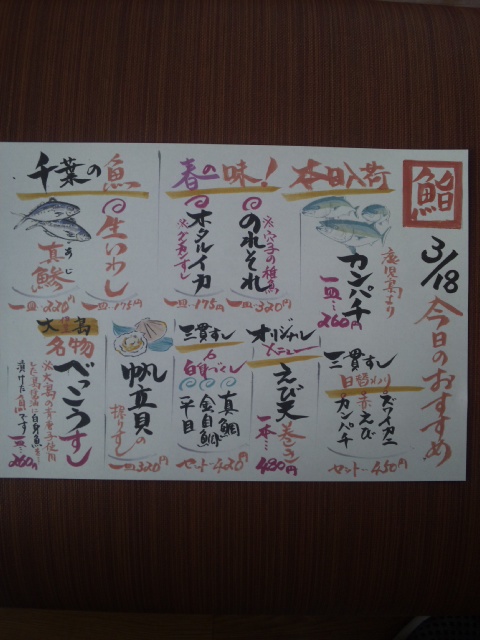 鮨
3/18
今日のおすすめ
本日入荷
鹿児島より
カンパチ
一皿…260円
春の味！
のれそれ
※穴子の稚魚
一皿…320円
ホタルイカ
※グンカンすし
一皿…175円
千葉の魚
生いわし
一皿…175円
真鯵
あじ
一皿…220円
三貫すし
日替わり
ズワイガニ
赤えび
カンパチ
セット…450円
オリジナル
メニュー
えび天巻き
一本…480円
三貫すし
白身づくし
真鯛
金目鯛
平目
セット…420円
帆立貝の
握りすし
一皿…320円
大島
名物
べっこうすし
※大島の青唐辛子使用
した島醤油に白身魚を
漬けた魚です
一皿…260円